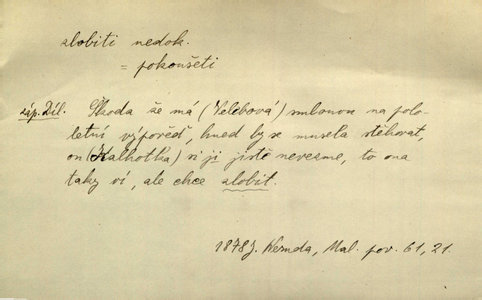 zlobiti nedok.
= pokoušeti
záp. Díl. Škoda že má (Velebová) smlouvu na polo-
letní výpověď, hned by se musela stěhovat,
on (Kalhotka) si ji jistě nevezme, to ona
taky ví, ale chce zlobit.
1878 J. Neruda, Mal. pov. 61, 21.